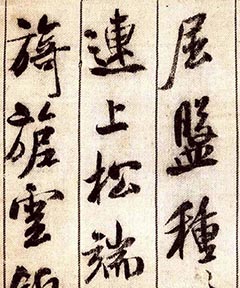 屈盤種
連上松端
旖旎雲